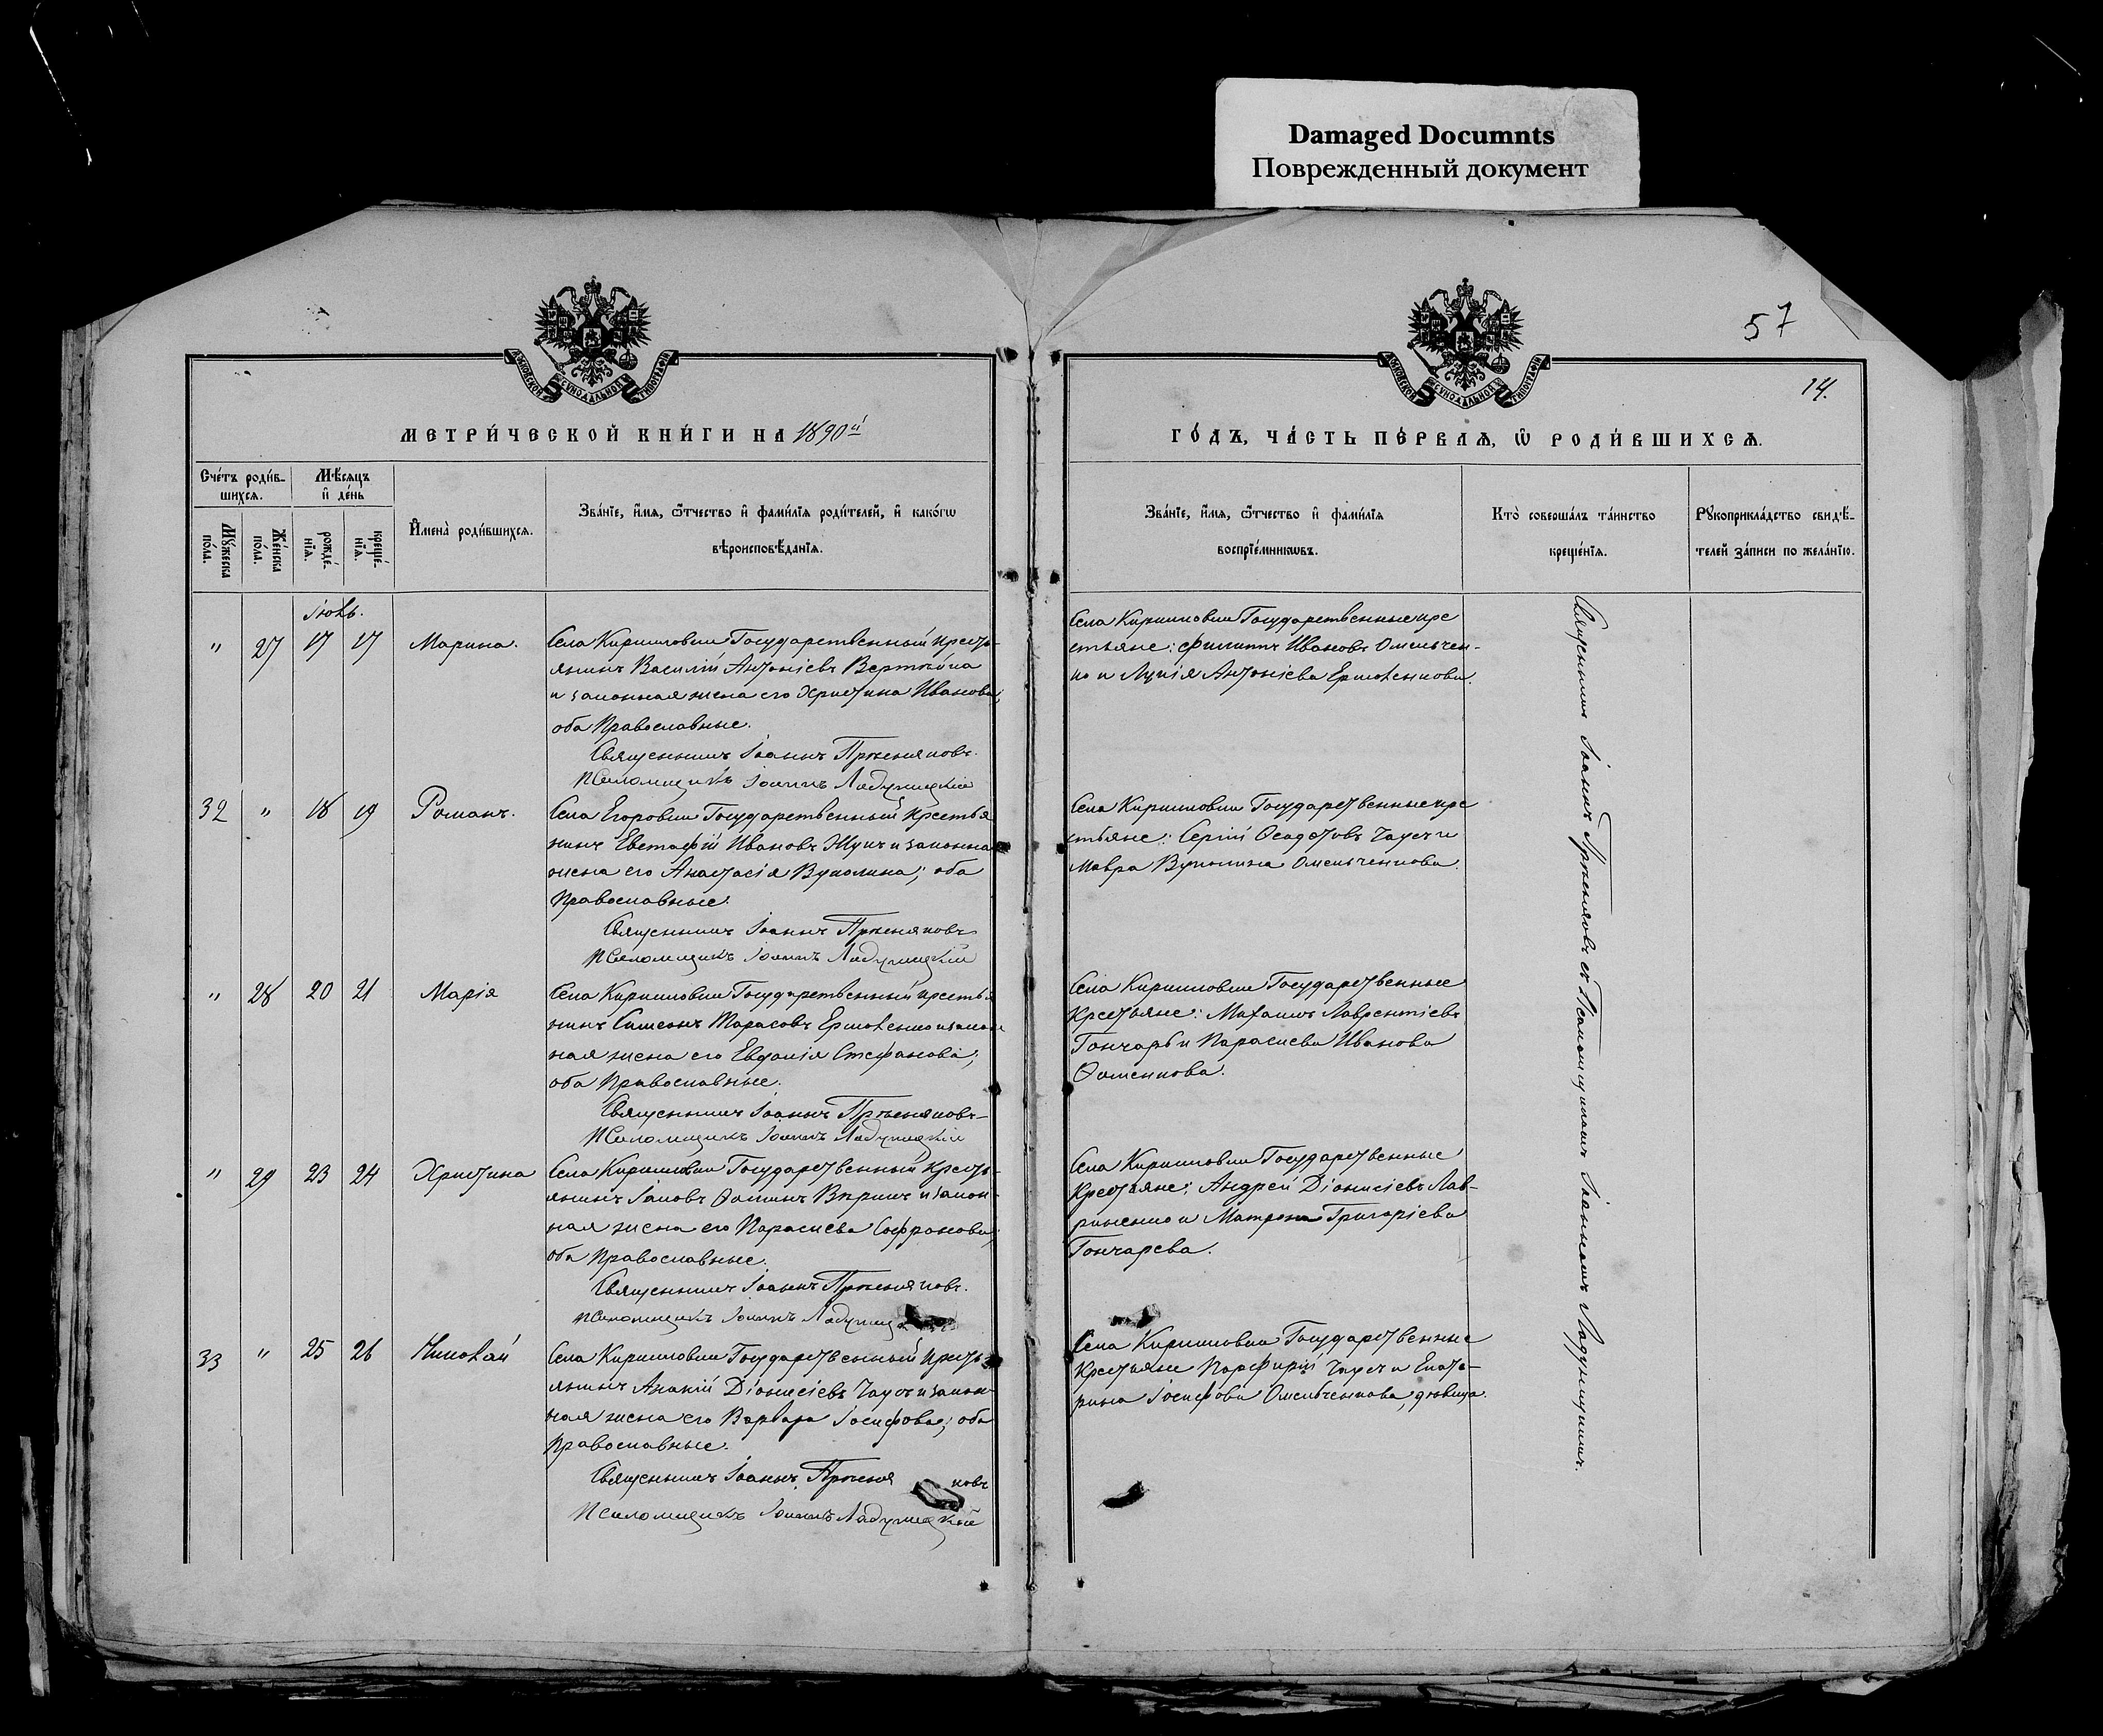 Damaged Documnts
Поврежденный документ
57
14.
МОСКОВСКОЙ СѴНОДАЛЬНОЙ ТИПОГРАФІИ
МОСКОВСКОЙ СѴНОДАЛЬНОЙ ТИПОГРАФІИ
МЕТРИ́ЧЕСКОЙ КНИ́ГИ НА 1890й
ГО́ДЪ, ЧА́СТЬ ПЕ́РВАѦ, Ѿ РОДИ́ВШИХСѦ.
Сче́тъ роди́в-
шихсѧ.
Мѣ́сѧцъ
и҆ де́нь
Мꙋ́жеска по́ла.
Же́нска по́ла.
рожде́-нїѧ.
креще́-нїѧ.
И҆мена̀ роди́вшихсѧ.
Зва́нїе, и҆́мѧ, ѻ҆́тчество и҆ фами́лїѧ роди́телей, и҆ како́гѡ
вѣроисповѣ́данїѧ.
Зва́нїе, и҆́мѧ, ѻ҆́тчество и҆ фами́лїѧ
воспрїе́мникѡвъ.
Кто̀ соверша́лъ та́инство
креще́нїѧ.
Рꙋкоприкла́дство свидѣ́-
телей за́писи по жела́нїю.
Іюнь.
" 27 17 17 Марина.
Села Кириловки Государственный кресть-
янинъ Василій Антоніевъ
и законная жена его Христина Иванова,
оба Православные.
Священникъ Іоаннъ
Псаломщикъ Іоаннъ Ладухицкій
Села Кириловки Государственные кре
стьяне: Филиппъ Ивановъ Омельчен-
ко и Лукія Антоніева Ермоленкова.
32 " 18 19 Романъ.
Села Егоровки Государственный крестья
нинъ Евстафій Ивановъ Жукъ и законна
жена его Анастасія Вуколина; оба
Православные.
Священникъ Іоаннъ
Псаломщикъ Іоаннъ Ладухицкій
Села Кириловки Государственные кре
стьяне: Сергій Чаусъ и
Мавра Вуколина Омельченкова.
" 28 20 21 Марія
Села Кириловки Государственный кресть
нинъ Самсонъ Тарасовъ Ермоленко и закон
ная жена его Евдокія Стефанова;
оба Православные.
Священникъ Іоаннъ
Псаломщикъ Іоаннъ Ладухицкій
Села Кириловки Государственные
крестьяне: Михаилъ Лаврентіевъ
Гончаръ и Параскева Иванова
Ѳоменкова.
" 29 23 24 Христина
Села Кириловки Государственный кресть-
янинъ Іаковъ Ѳоминъ и закон-
ная жена его Параскева Софронова,
оба Православные.
Священникъ Іоаннъ
Псаломщикъ Іоаннъ
Села Кириловки Государственные
крестьяне: Андрей Діонисіевъ Лав-
риненко и Матрона Григоріева
Гончарева.
33 " 25 26 Николай
Села Кириловки Государственный кресть-
янинъ Ананій Діонисіевъ Чаусъ и закон-
ная жена его Варвара Іосифова; оба
Православные.
Священникъ Іоаннъ
Псаломщикъ Іоаннъ Ладухицкій
Села Кириловки Государственные
крестьяне Порфирій Чаусъ и Екате-
рина Іосифова Омельченкова, дѣвица.
Священникъ Іоаннъ съ Псаломщикомъ Іоанномъ Ладухицкимъ.